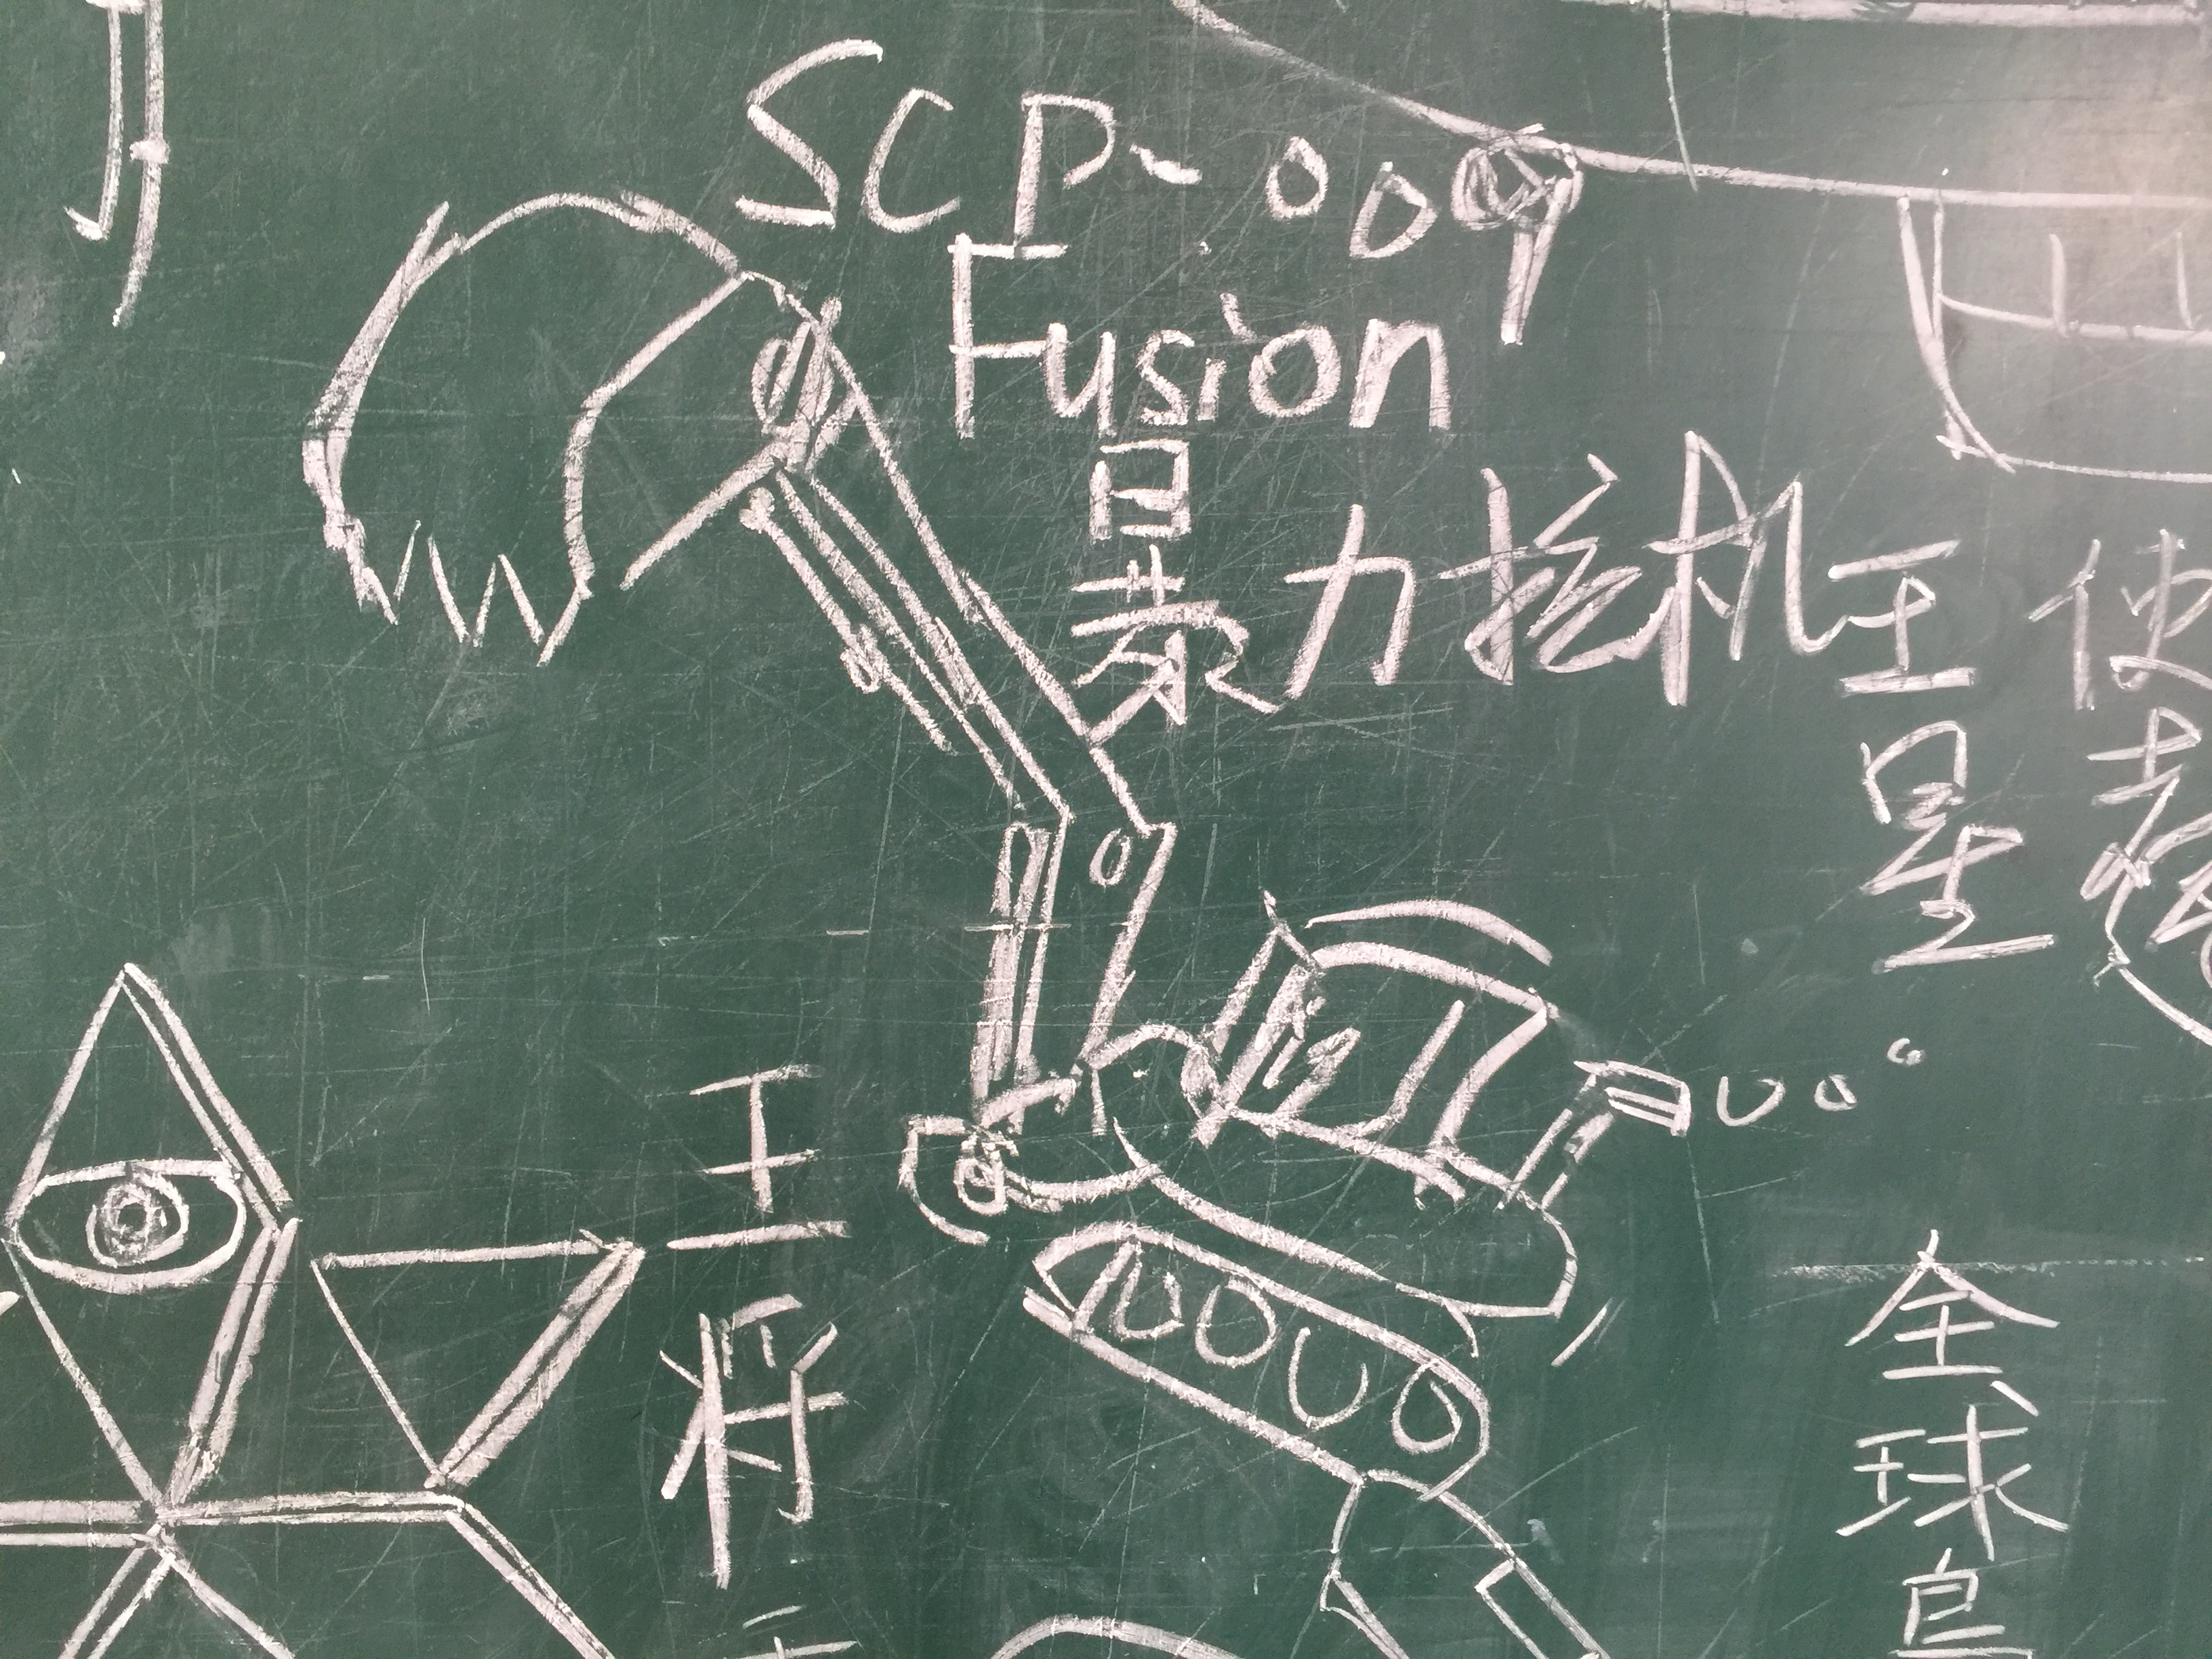 SCP-009
Fusion
暴力挖机王
星
王
将
全
球